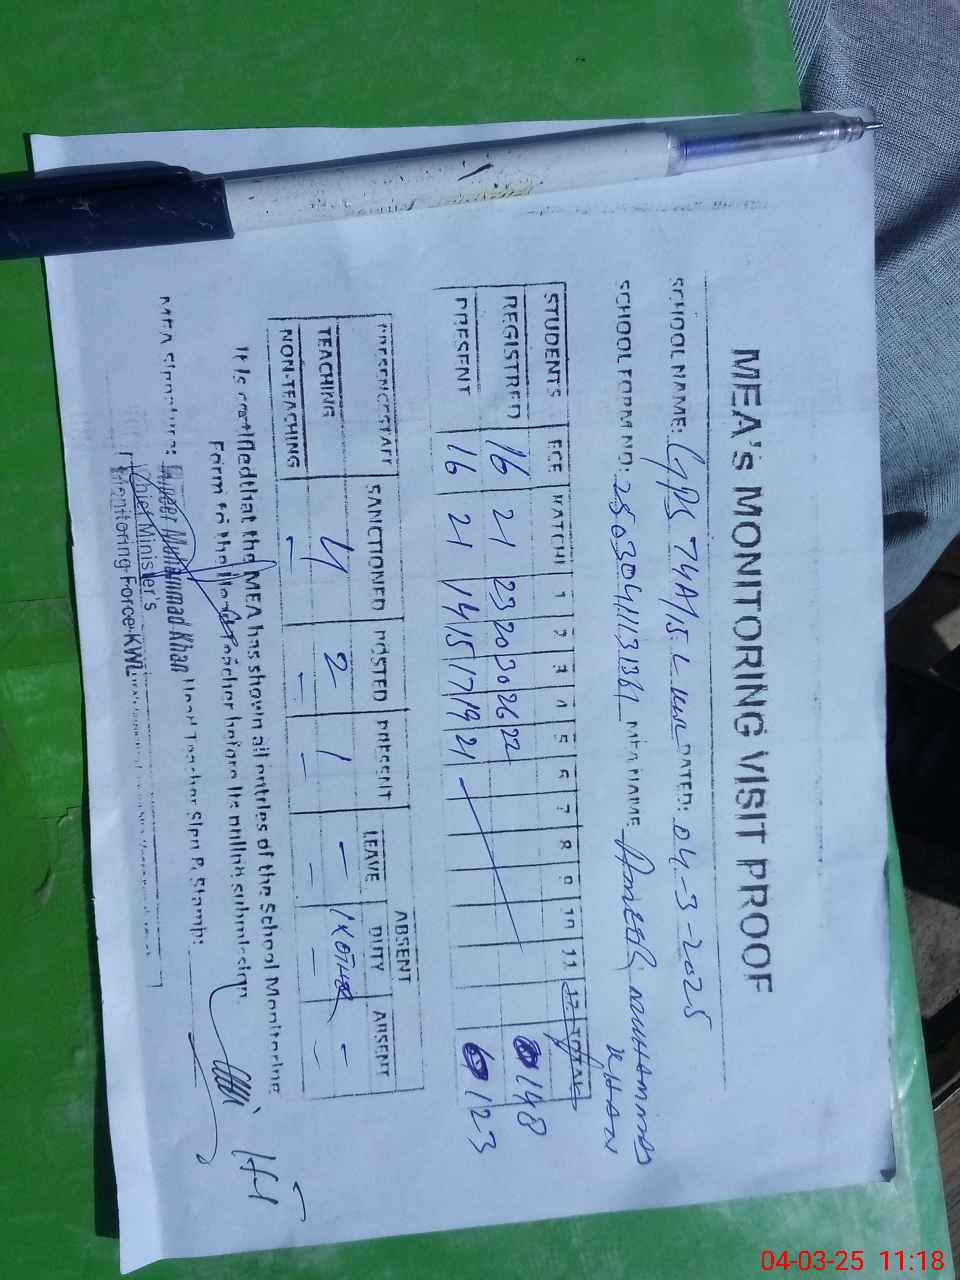 MEA'S MONITORING VISIT PROOF
SCHOOL NAME: GPS 74A/15-L DATED: 04-3-2025
SCHOOL FORM NO: MEA NAME: AMEER MUHAMMAD
KHAN
STUDENTS ECE KATCHI 1 2 3 4 5 6 7 8 9 10 11 12 TOTAL
REGISTRED 16 21 23 20 30 26 22 148
PRESENT 16 21 14 15 17 19 21 123
PRESENCE STAFF SANCTIONED POSTED PRESENT ABSENT
LEAVE DUTY ABSENT
TEACHING 4 2 1 - 1X OTHER -
NON-TEACHING - - - - - -
It is certified that the MEA has shown all entries of the School Monitoring
Form to the Head Teacher before its online submission.
MEA Signature: Ameer Muhammad Khan Head Teacher Sign & Stamp:
Chief Minister's
Monitoring Force KWL
04-03-25 11:18